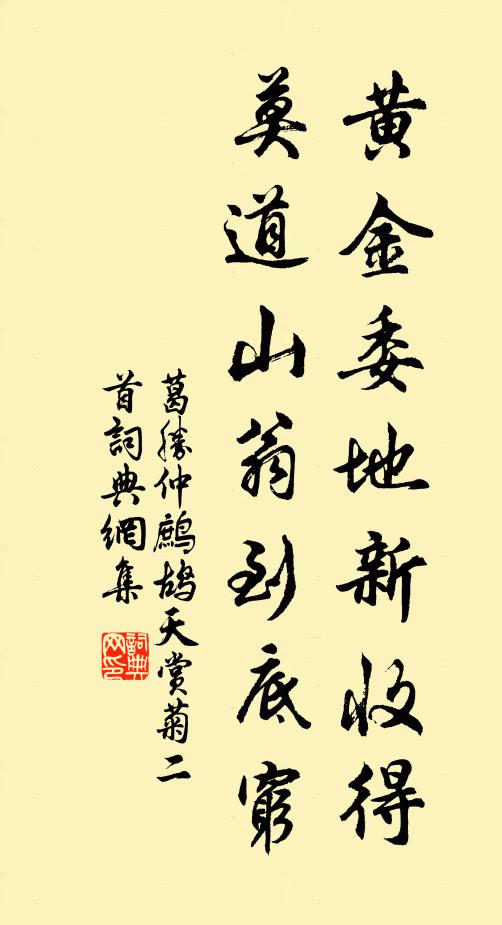 黄金委地新收得
莫道山翁到底窮
葛勝仲鷓鴣天賞菊二
首詞典網集
詞典
网印